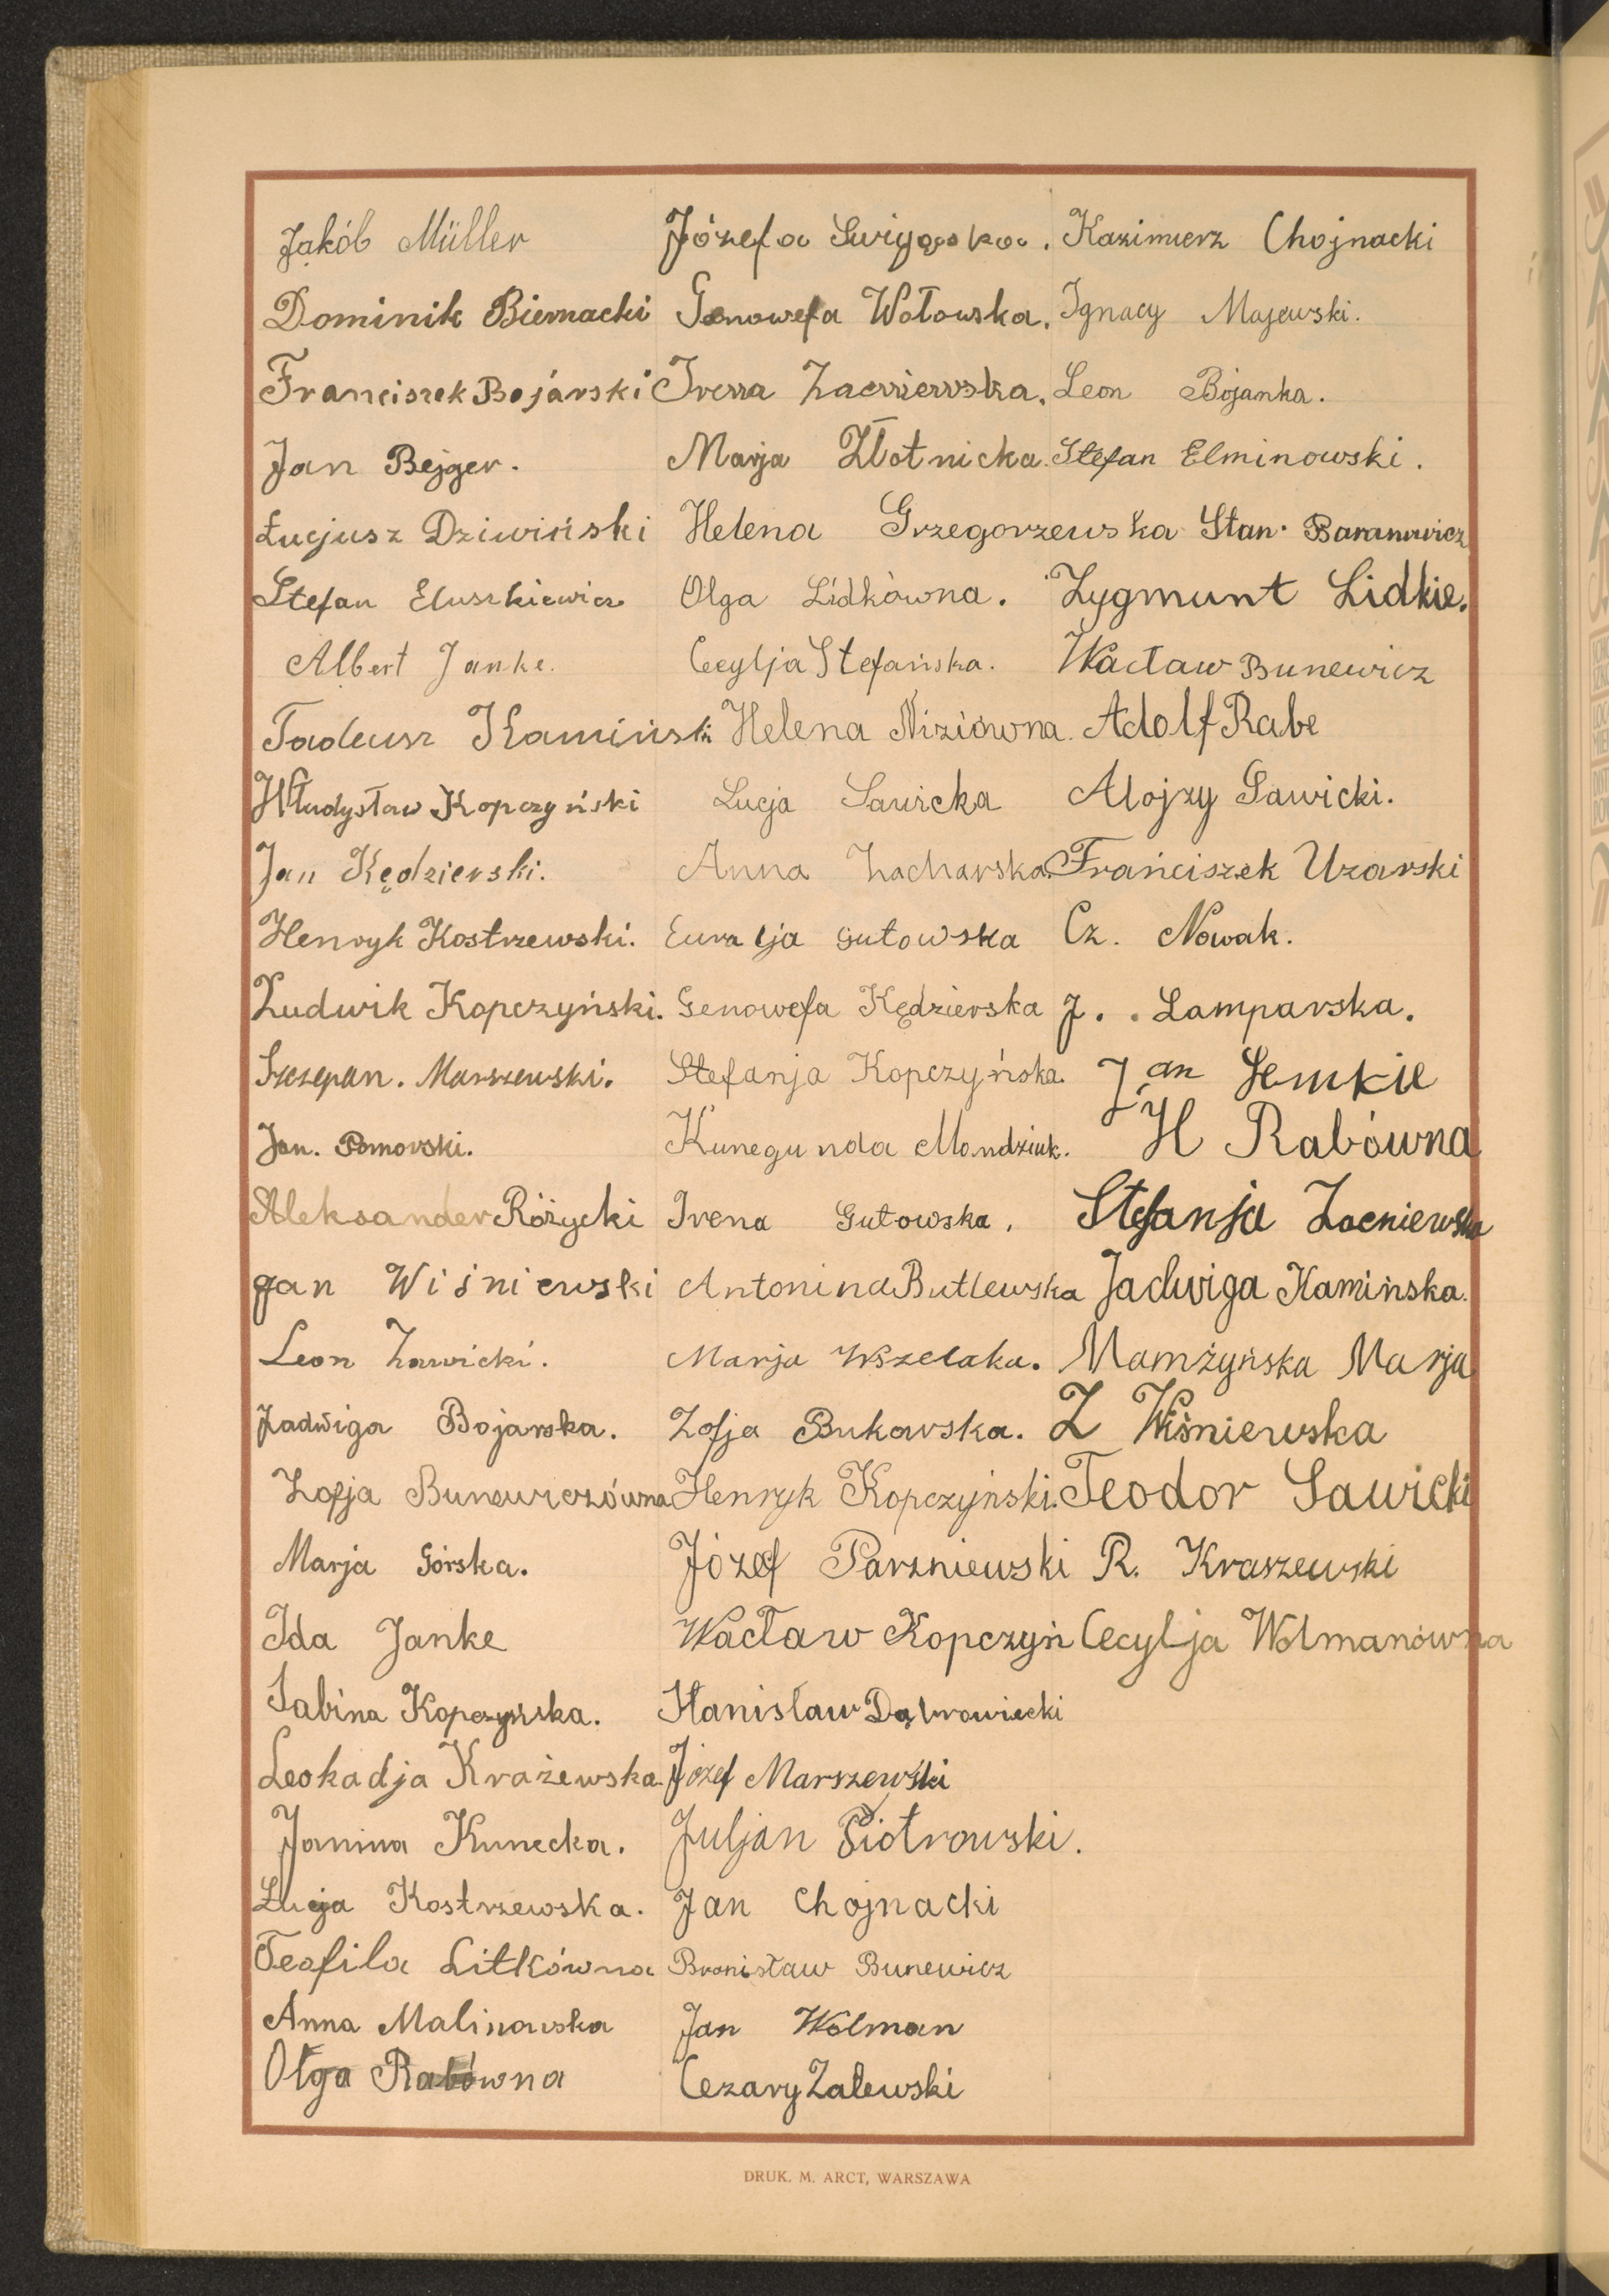 Jakób Müller
Dominik Biernacki
Franciszek Bojarski
Jan Bejger.
Łucjusz Dziwiński
Stefan Eluszkiewicz
Albert Janke.
Tadeusz Kamiński
Władysław Kopczyński
Jan Kędzierski.
Henryk Kostrzewski.
Ludwik Kopczyński.
Szczepan. Marszewski.
Jan. Pomorski.
Aleksander Różycki
Jan Wiśniewski
Leon Zawicki.
Jadwiga Bojarska.
Zofja Bunewiczówna
Marja Górska.
Ida Janke
Sabina Kopczyńska.
Leokadja Krażewska.
Janina Kunecka.
Łucja Kostrzewska.
Teofila Litkówna
Anna Malinowska
Olga Rabówna
Józefa
Genowefa Wołowska.
Irena Zacniewska.
Marja Złotnicka.
Helena Grzegorzewska
Olga Lidkówna.
Cecylja Stefańska.
Helena Niziówna.
Lucja Sawicka
Anna Zacharska.
Gutowska
Genowefa Kędzierska
Stefanja Kopczyńska.
Kunegunda Mondziuk.
Irena Gutowska.
Antonina Butlewska
Marja Wszelaka.
Zofja Bukowska.
Henryk Kopczyński.
Józef Parzniewski
Wacław Kopczyń
Stanisław Dąbrowiecki
Józef Marszewski
Juljan Piotrowski.
Jan Chojnacki
Bronisław Bunewicz
Jan Wolman
Cezary Zalewski
Kazimierz Chojnacki
Ignacy Majewski.
Leon Bojanka.
Stefan Elminowski.
Stan. Baranowicz
Zygmunt Lidkie.
Wacław Bunewicz
Adolf Rabe
Alojzy Sawicki.
Franciszek Uzarski
Cz. Nowak.
J. . Lamparska.
Jan Lemkie
H Rabówna
Stefanja Zacniewska
Jadwiga Kamińska.
Mamżyńska Marja
Z Wiśniewska
Teodor Sawicki
R. Kraszewski
Cecylja Wolmanówna
DRUK. M. ARCT, WARSZAWA